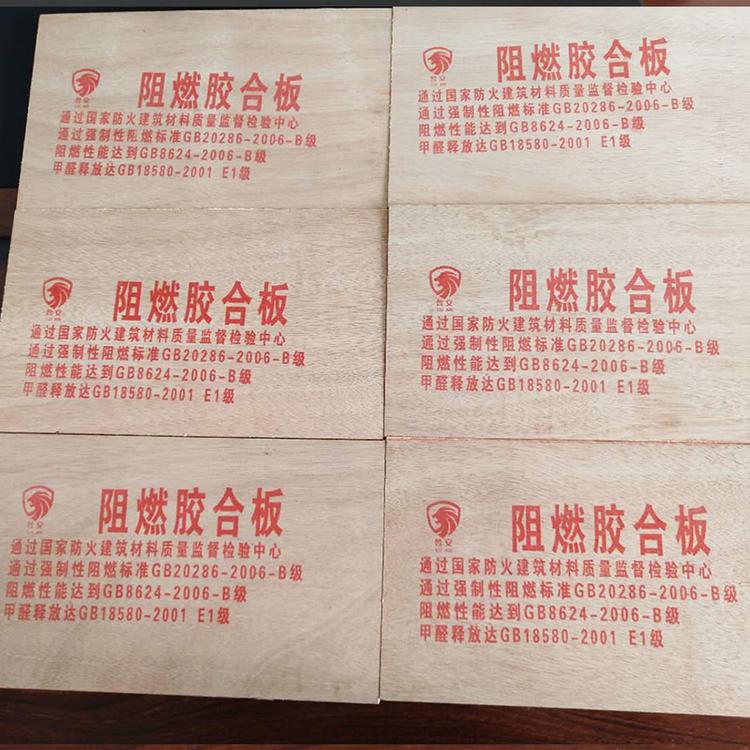 阻燃胶合板
通过国家防火建筑材料质量监督检验中心
通过强制性阻燃标准GB20286-2006-B级
阻燃性能达到GB8624-2006-B级
甲醛释放达GB18580-2001 E1级
阻燃胶合板
通过国家防火建筑材料质量监督检验中心
通过强制性阻燃标准GB20286-2006-B级
阻燃性能达到GB8624-2006-B级
甲醛释放达GB18580-2001 E1级
阻燃胶合板
通过国家防火建筑材料质量监督检验中心
通过强制性阻燃标准GB20286-2006-B级
阻燃性能达到GB8624-2006-B级
甲醛释放达GB18580-2001 E1级
阻燃胶合板
通过国家防火建筑材料质量监督检验中心
通过强制性阻燃标准GB20286-2006-B级
阻燃性能达到GB8624-2006-B级
甲醛释放达GB18580-2001 E1级
阻燃胶合板
通过国家防火建筑材料质量监督检验中心
通过强制性阻燃标准GB20286-2006-B级
阻燃性能达到GB8624-2006-B级
甲醛释放达GB18580-2001 E1级
阻燃胶合板
通过国家防火建筑材料质量监督检验中心
通过强制性阻燃标准GB20286-2006-B级
阻燃性能达到GB8624-2006-B级
甲醛释放达GB18580-2001 E1级